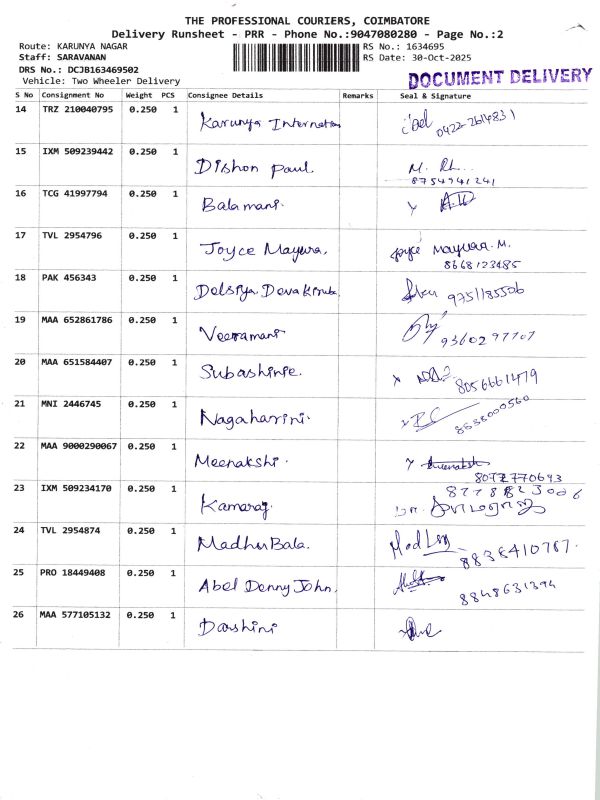 THE PROFESSIONAL COURIERS, COIMBATORE
Delivery Runsheet - PRR - Phone No.:9047080280 - Page No.:2
Route: KARUNYA NAGAR
RS No.: 1634695
Staff: SARAVANAN
RS Date: 30-Oct-2025
DRS No.: DCJB163469502
Vehicle: Two Wheeler Delivery
DOCUMENT DELIVERY
S No Consignment No Weight PCS Consignee Details Remarks Seal & Signature
14 TRZ 210040795 0.250 1 Karunya Internation
0422-2614831
15 IXM 509239442 0.250 1 Dishon Paul
8754941241
16 TCG 41997794 0.250 1 Balamani.
17 TVL 2954796 0.250 1 Joyce Mayura. Joyce Mayuraa. M.
8668123485
18 PAK 456343 0.250 1 Delsiya Deva Kiruba. 9751185506
19 MAA 652861786 0.250 1 Veeramani 9360297707
20 MAA 651584407 0.250 1 Subashinie. 8056661479
21 MNI 2446745 0.250 1 Nagaharini. 8838000560
22 MAA 9000290067 0.250 1 Meenakshi.
8072770693
23 IXM 509234170 0.250 1 Kamaraj.
24 TVL 2954874 0.250 1 MadhuBala. 8838410767.
25 PRO 18449408 0.250 1 Abel Denny John. 8848631394
26 MAA 577105132 0.250 1 Darshini